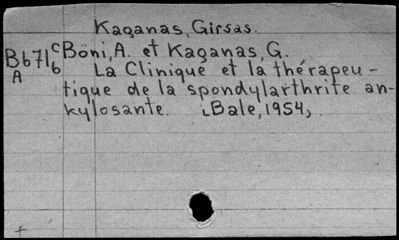 Kaganas, Girsas.
Bb71bc Böni, A. et Kaganas, G.
A La Clinique et la thérapeu-
tique de la spondylarthrite an-
kylosante. [Bale, 1954]